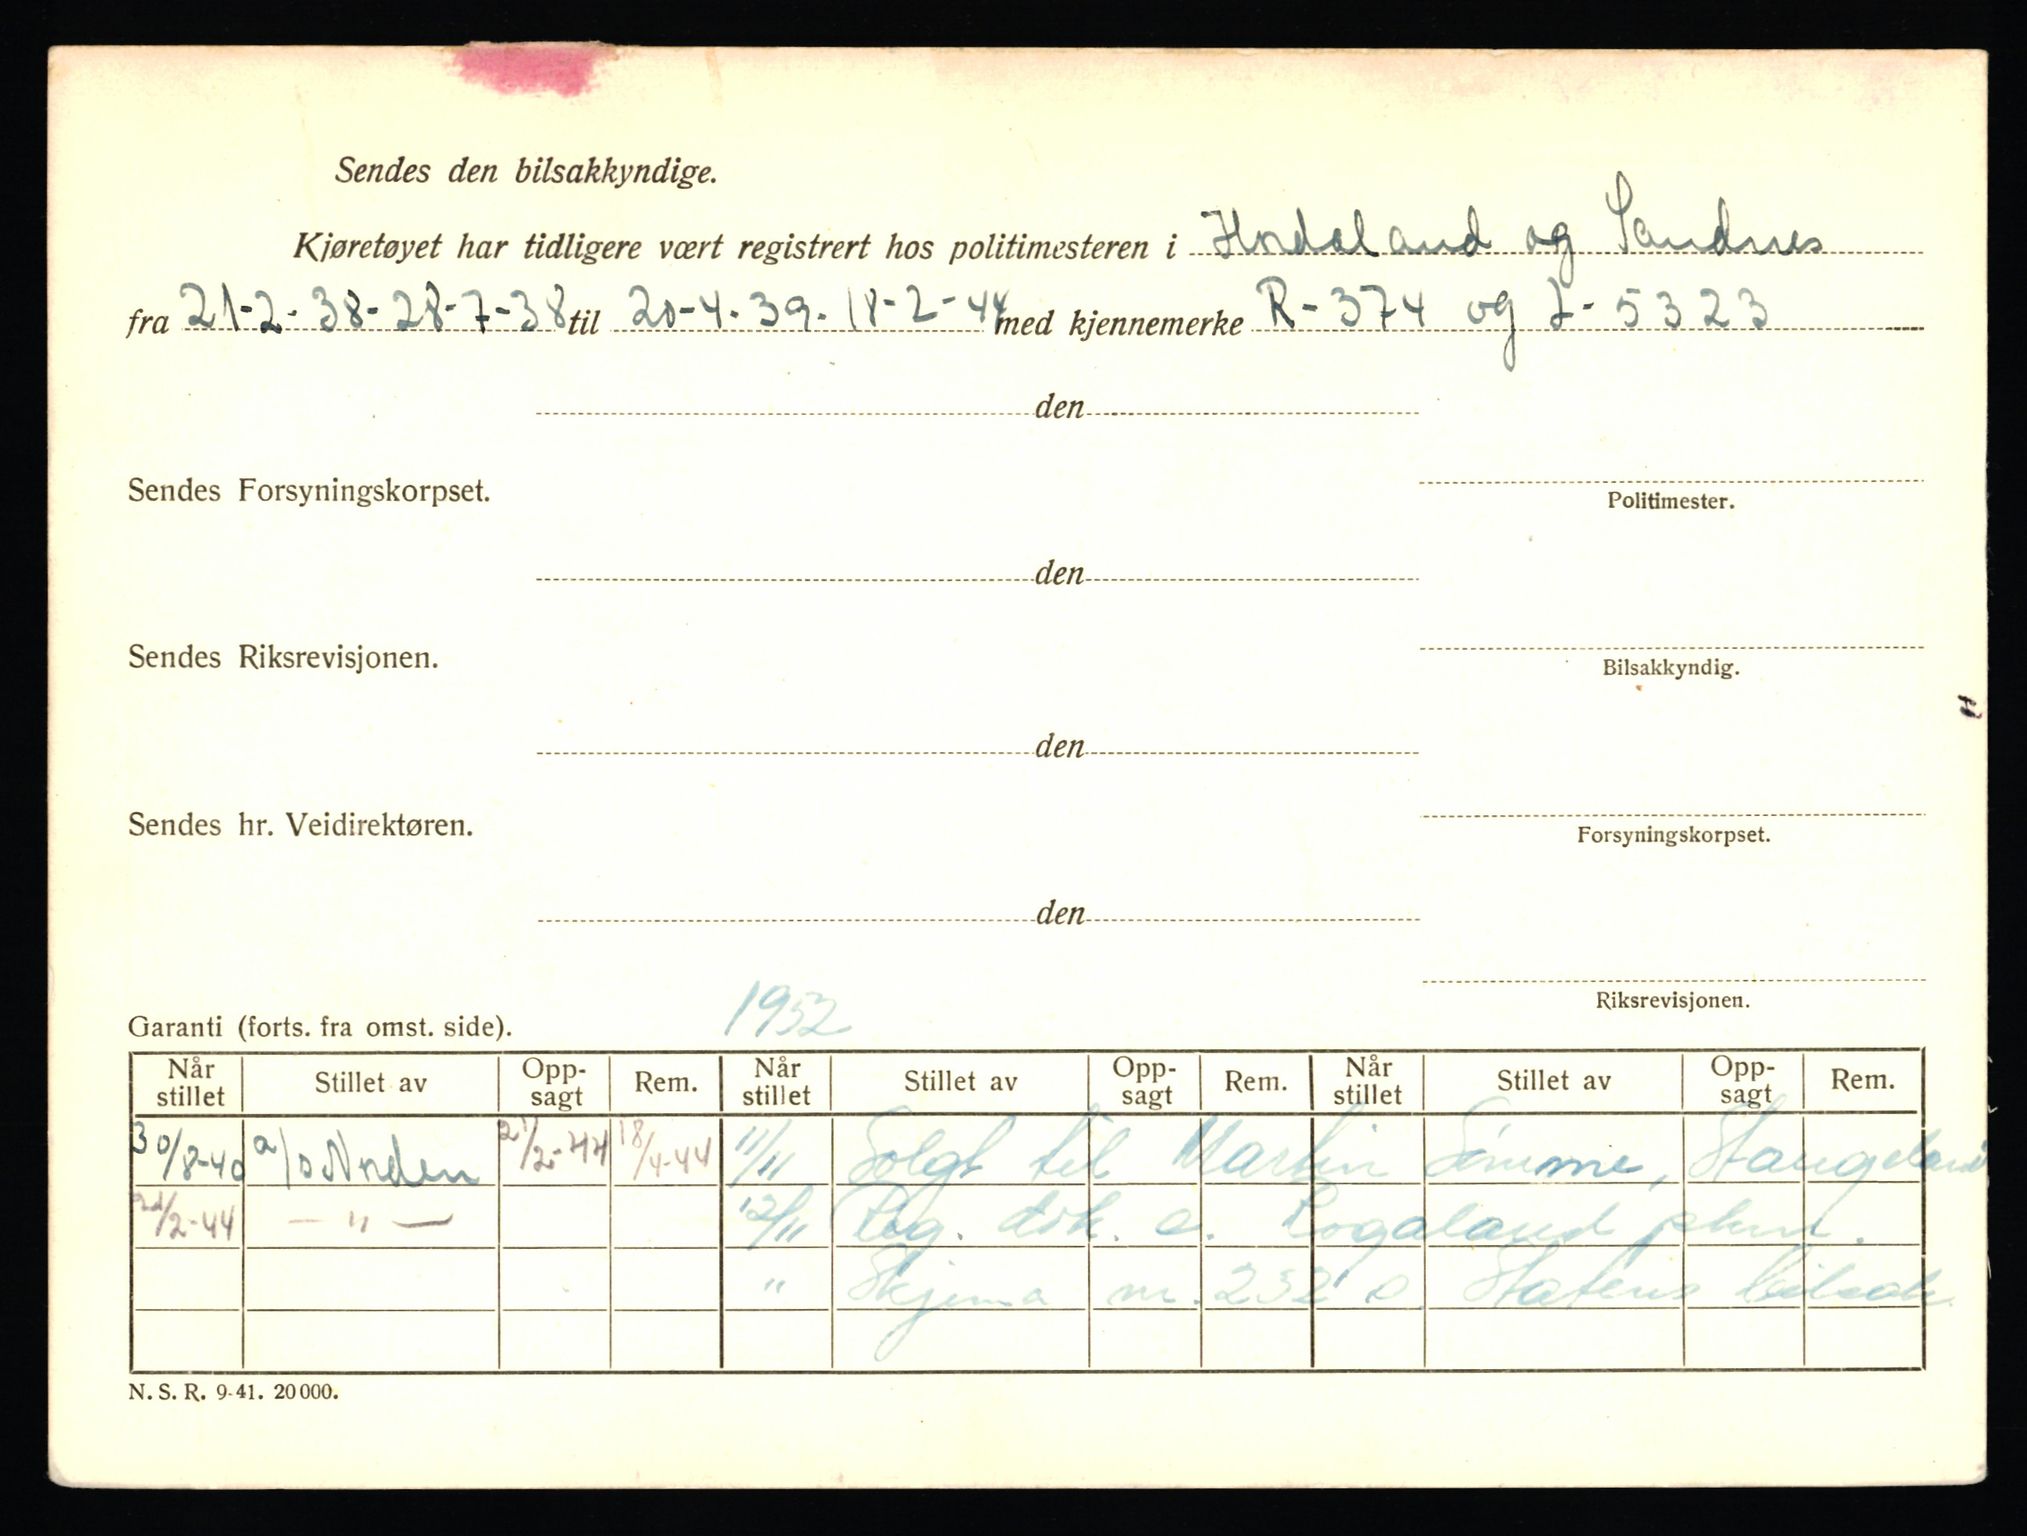 Sendes den bilsakkyndige.
Kjøretøyet har tidligere vært registrert hos politimesteren i Hordaland og Sandnes
fra 21-2-38-28-7-38 til 20-4-39-18-2-44 med kjennemerke R-374 og L-5323
den
Sendes Forsyningskorpset.
Politimester.
den
Sendes Riksrevisjonen.
Bilsakkyndig.
den
Sendes hr. Veidirektøren.
Forsyningskorpset.
den
Riksrevisjonen.
1952
Garanti (forts. fra omst. side).
Når stillet Stillet av Opp-sagt Rem. Når stillet Stillet av Opp-sagt Rem. Når stillet Stillet av Opp-sagt Rem.
30/8-40 a/s Norden 21/2-44 18/4-44 11/11 Solgt til Martin Sømme, Stangeland
22/2-44 — " — 12/11 Reg. dok. s. Rogaland pkm.
" Skjema nr. 232 s. Statens bilsak.
N. S. R. 9-41. 20 000.